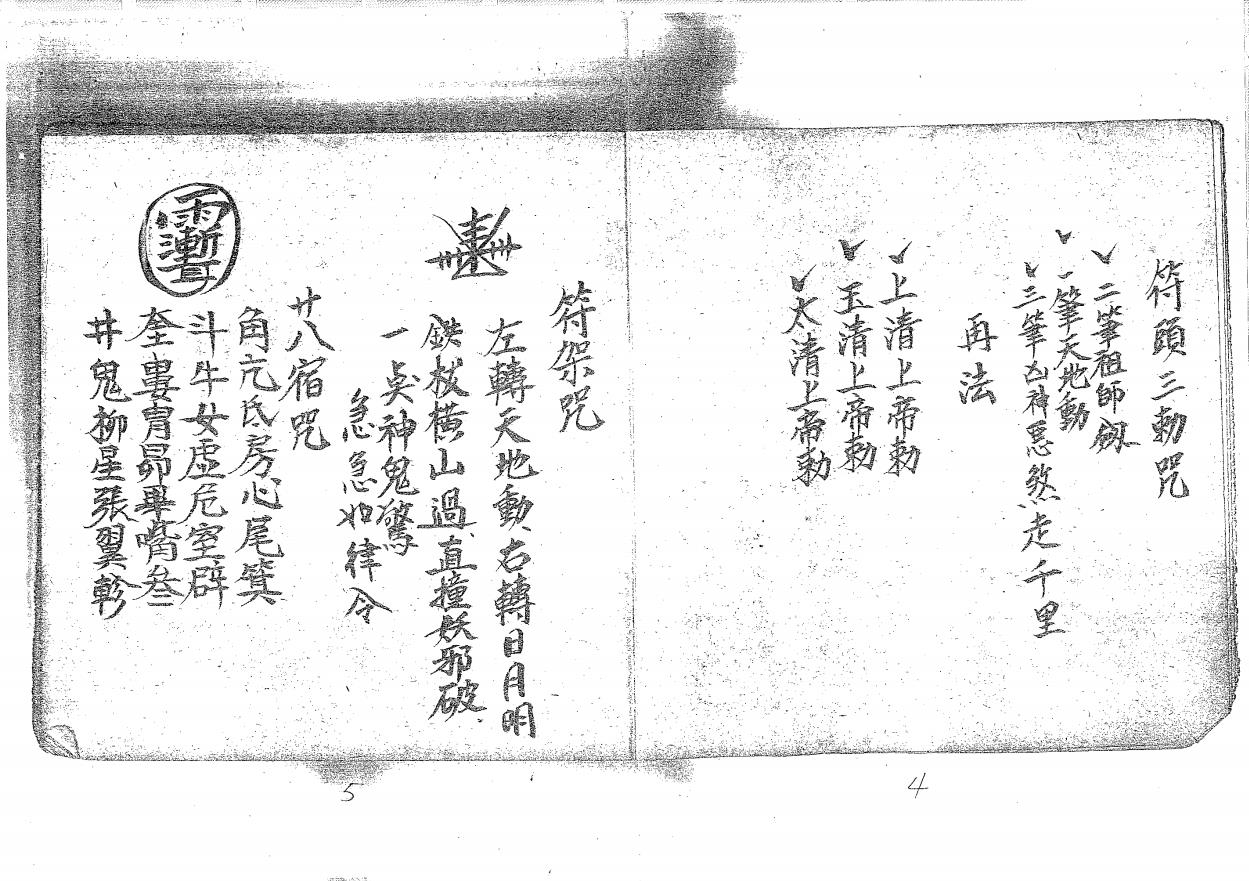 符頭三勅咒
二筆祖師劔
一筆天地動
三筆凶神惡煞走千里
再法
上清上帝勅
玉清上帝勅
太清上帝勅
4
符架咒
左轉天地動右轉日月明
鉄杖橫山過直撞妖邪破
一奌神鬼驚
急急如律令
廿八宿咒
角亢氐房心尾箕
斗牛女虛危室辟
奎婁胃昴畢嘴叁
井鬼柳星張翼軫
5